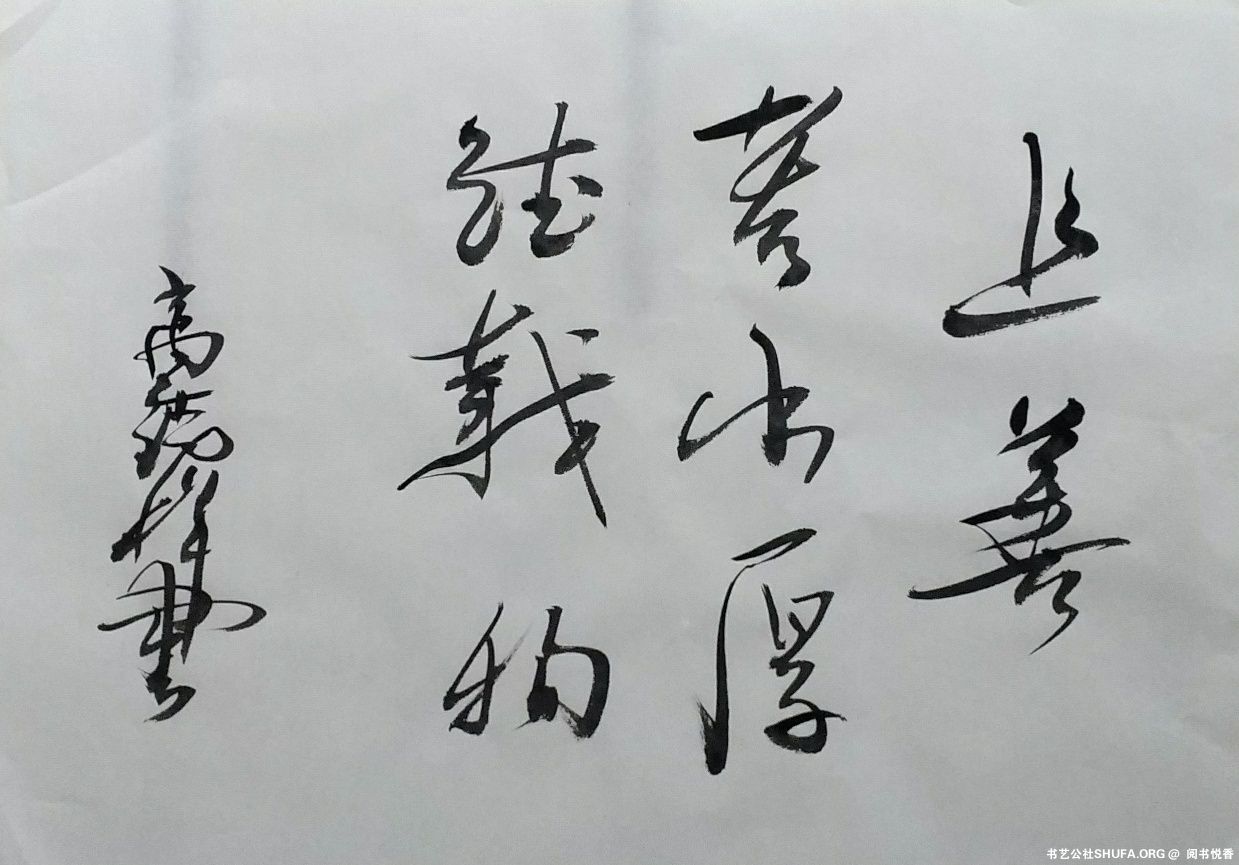 上善
若水厚
德載物
高書
书艺公社SHUFA.ORG @ 阅书悦香